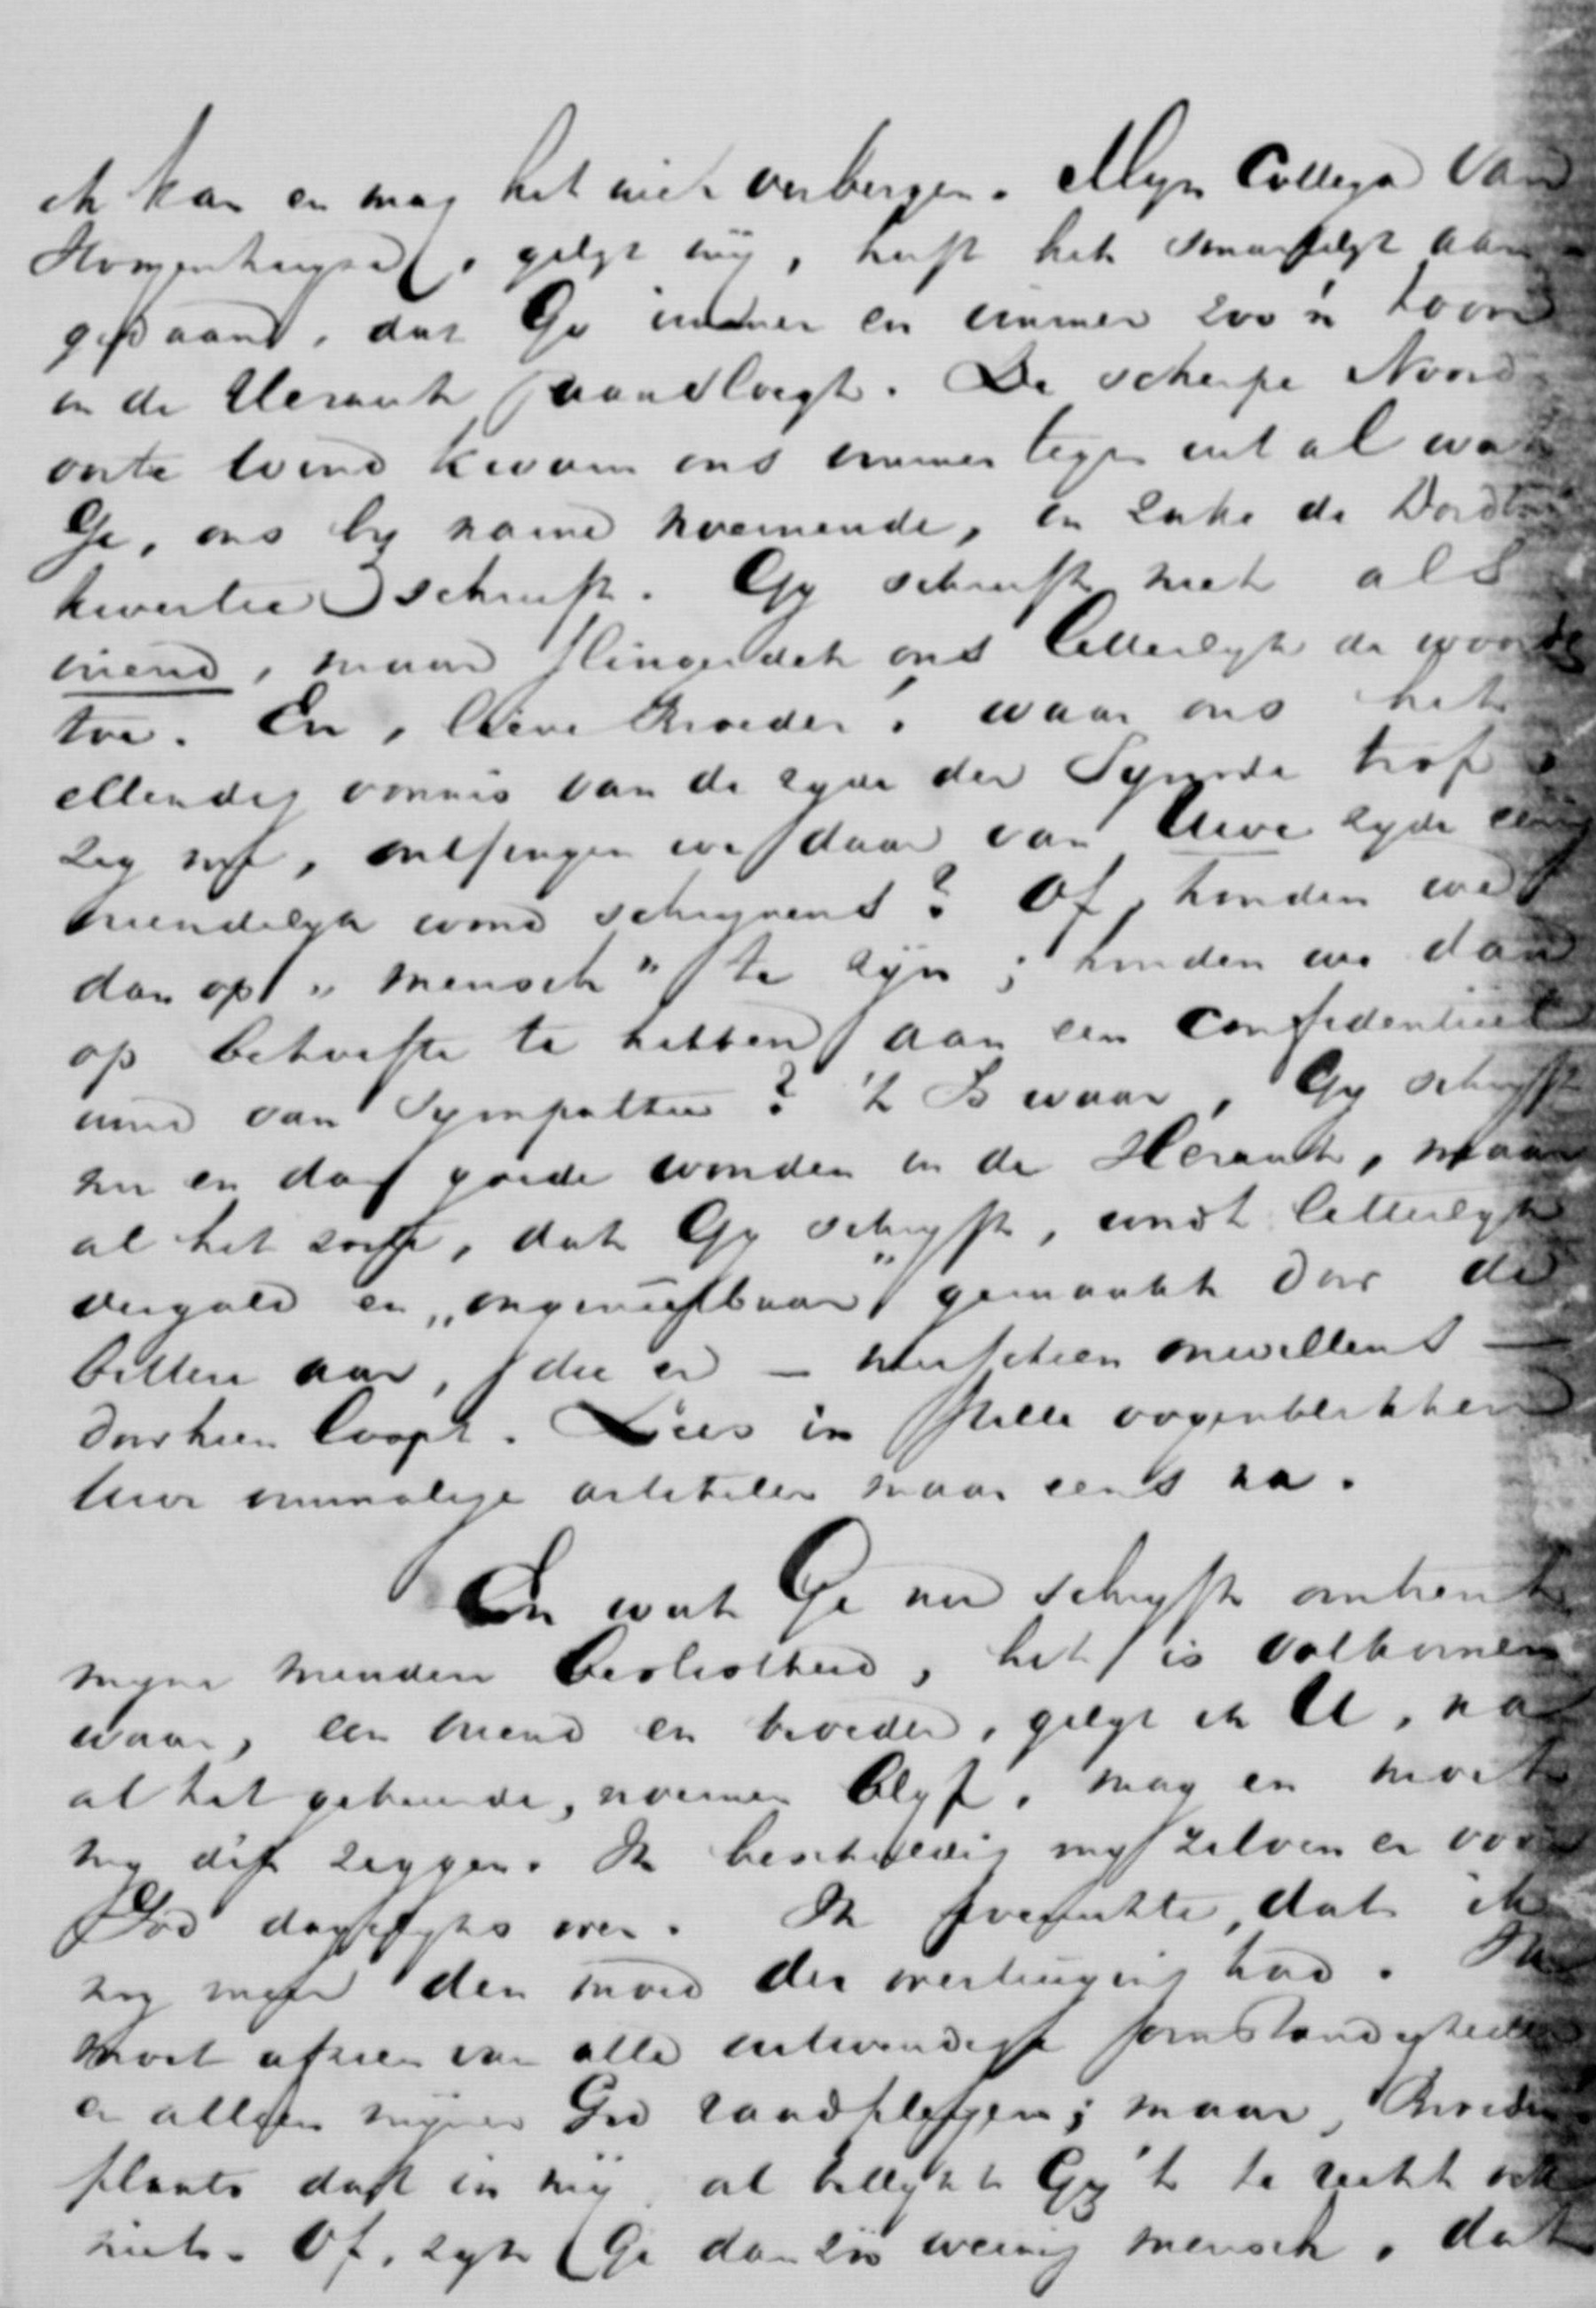 ik kan en mag het niet verbergen. Myn Collega van
Hoogenhuyze, gelyk my, heeft het smartelyk aan-
gedaan, dat Ge immer en immer zoo'n toon
in de Heraut aansloegt. De scherpe Noord
ooste wind kwam ons immer tegen uit al wat
Ge, ons by name noemende, in zake de Dordtsche
kwestie schreeft. Gy schreeft niet als
vriend, maar slingerdet ons letterlyk de woorden
toe. En, lieve Broeder, waar ons het
ellendig vonnis van de zyde der Synode trof,
zeg my, ontfingen we daar van Uwe zyde een
vriendelyk woord schryvens? Of, konden we
dan op "mensch" te zyn; konden we dan
op behoefte te hebben aan een confidentieel
van Sympathie? 't Is waar, Gy schryft
nu en dan goede woorden in de Heraut, maar
al het zoete, dat Gy schryft, wordt letterlyk
vergald en "ongenietbaar" gemaakt door de
bittere aar, die er — misschien onwillens —
doorheen loopt. Lees in stille oogenblikken
Uwe artikelen maar eens na.
En wat Ge nu schryft omtrent
myne mindere beslistheid, het is volkomen
waar, een vriend en broeder, gelyk ik U, na
al het gebeurde, noemen blyf, mag en moet
my dit zeggen. Ik beschuldig my zelven er voor
God dagelyks over. Ik dat ik
nog meer den moed der overtuiging had. Ik
moet afzien van alle uitwendige omstandigheden
en alleen mynen God raadplegen; maar, Broeder
plaats dat in my, al billykt Gy 't te recht ook
niet. Of, zyt Ge dan zoo weinig mensch, dat